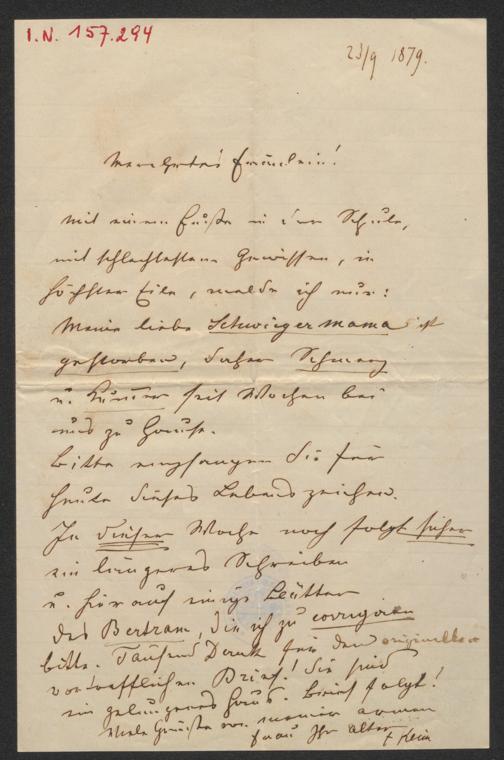 I.N. 157.294
23/9 1879.
Fräulein!
mit einem Fuße in der Schule,
mit schlechtestem Gewissen, in
höchster Eile, melde ich nur:
Meine liebe Schwiegermama ist
gestorben, daher Schmerz
u. Kummer seit Wochen bei
uns zu Hause.
Bitte empfangen Sie für
heute dieses Lebenszeichen.
In dieser Woche noch folgt sicher
ein längeres Schreiben
u. hierauf einige Blätter
des Bertram, die ich zu corrigiren
bitte. Tausend Dank für den originellen
vortrefflichen Brief! Sie sind
ein gelungenes Haus. Brief folgt!
Viele Grüße von meiner armen
Frau Ihr alter